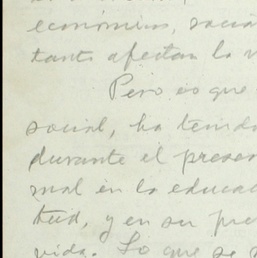 economico, social
tanto afectan la v
Pero es que
social, ha tenido
durante el presen
mal en la educac
tud, y en su pre
vida. Lo que se